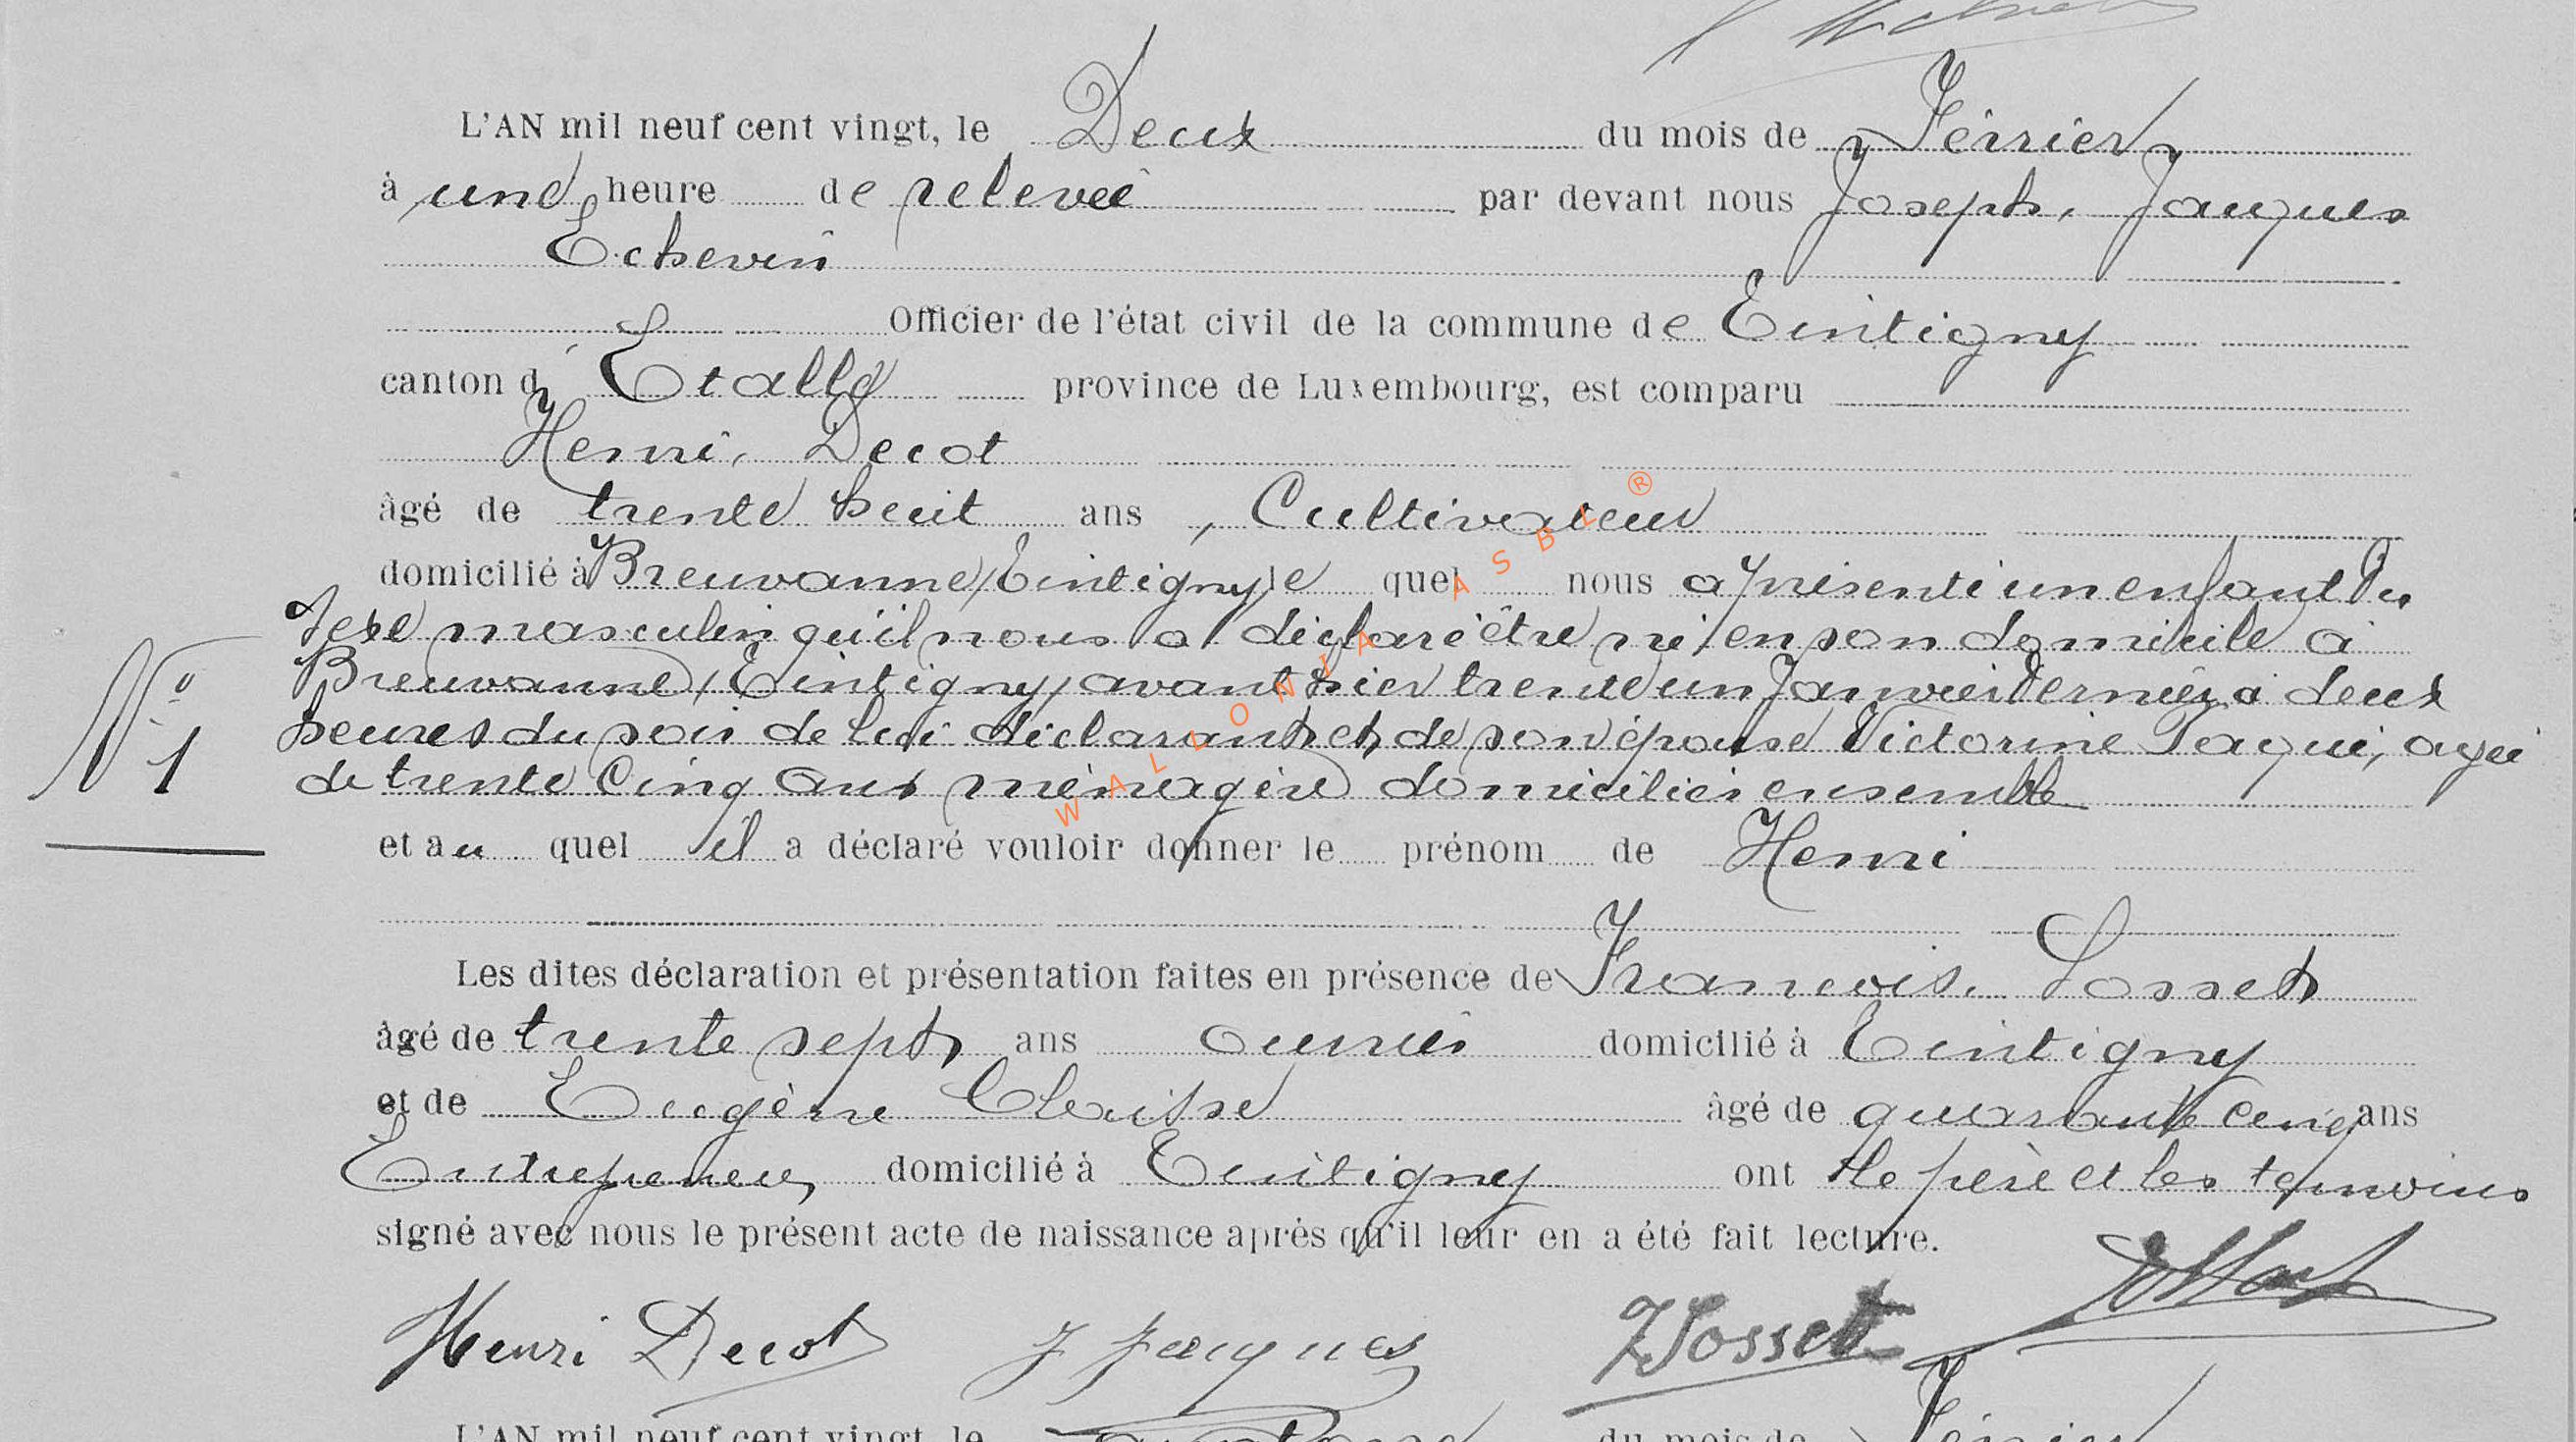 L'AN mil neuf cent vingt, le Deux du mois de Février
à une heure de relevée par devant nous Joseph, Jacques
Echevin
Officier de l'état civil de la commune de Tintigny
canton d'Etalle province de Luxembourg, est comparu
Henri, Decot
âgé de trente huit ans, Cultivateur
domicilié à Breuvanne/Tintigny/le quel nous a présenté un enfant du
sexe masculin qu'il nous a déclaré être né en son domicile à
Breuvanne/Tintigny/avant hier trente un Janvier dernier à deux
heures du soir de lui déclarant et de son épouse Victorine agée
de trente cinq ans ménagère domiciliés ensemble
N° 1
et au quel il a déclaré vouloir donner le prénom de Henri
Les dites déclaration et présentation faites en présence de Francois, Sosset
âgé de trente sept ans ouvrier domicilié à Tintigny
et de Eugène âgé de quarante cinq ans
Entrepeneur domicilié à Tintigny ont le père et les témoins
signé avec nous le présent acte de naissance après qu'il leur en a été fait lecture.
Henri Decot J Jacques Sosset
L'AN mil neuf cent vingt, le du mois de Février
WALLONIA ASBL®